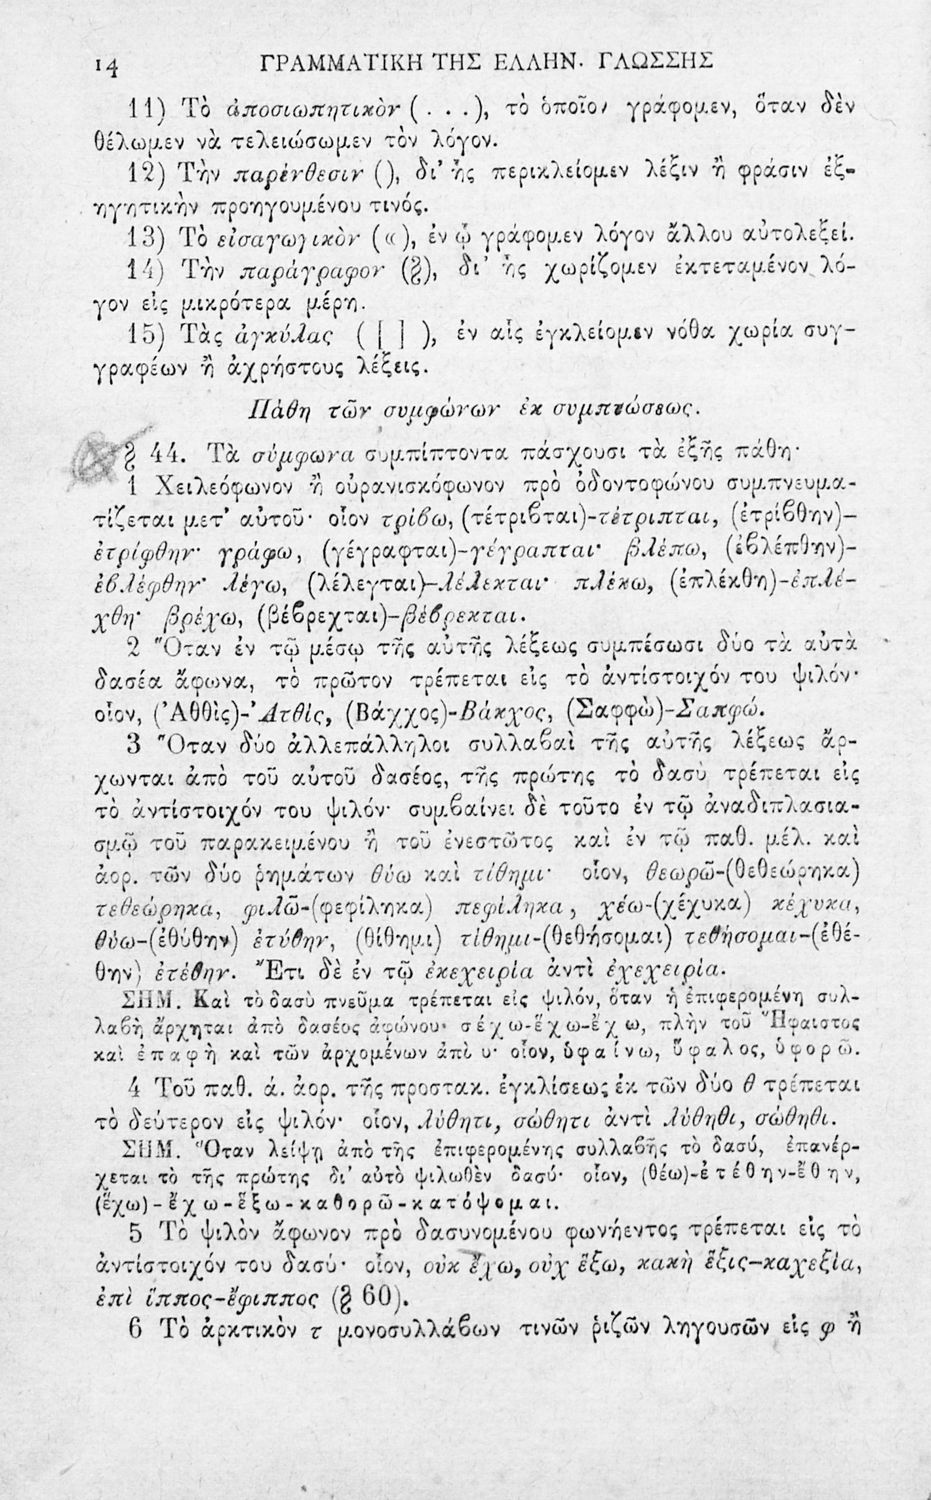 14 ΓΡΑΜΜΑΤΙΚΗ ΤΗΣ ΕΛΛΗΝ. ΓΛΩΣΣΗΣ
11) Τὸ ἀποσιωπητικὸν (. . .), τὸ ὁποῖον γράφομεν, ὅταν δὲν
θέλωμεν νὰ τελειώσωμεν τὸν λόγον.
12) Τὴν παρένθεσιν (), δι' ἧς περικλείομεν λέξιν ἢ φράσιν ἐξ-
ηγητικὴν προηγουμένου τινός.
13) Τὸ εἰσαγωγικὸν («), ἐν ᾧ γράφομεν λόγον ἄλλου αὐτολεξεί.
14) Τὴν παράγραφον (§), δι' ἧς χωρίζομεν ἐκτεταμένον λό-
γον εἰς μικρότερα μέρη.
15) Τὰς ἀγκύλας ( [ ] ), ἐν αἷς ἐγκλείομεν νόθα χωρία συγ-
γραφέων ἢ ἀχρήστους λέξεις.
Πάθη τῶν συμφώνων ἐκ συμπτώσεως.
§ 44. Τὰ σύμφωνα συμπίπτοντα πάσχουσι τὰ ἑξῆς πάθη·
1 Χειλεόφωνον ἢ οὐρανισκόφωνον πρὸ ὀδοντοφώνου συμπνευμα-
τίζεται μετ' αὐτοῦ· οἷον τρίβω, (τέτριβται)-τέτριπται, (ἐτρίβθην)-
ἐτρίφθην· γράφω, (γέγραφται)-γέγραπται· βλέπω, (ἐβλέπθην)-
ἐβλέφθην· λέγω, (λέλεγται)-λέλεκται· πλέκω, (ἐπλέκθη)-ἐπλέ-
χθη· βρέχω, (βέβρεχται)-βέβρεκται.
2 Ὅταν ἐν τῷ μέσῳ τῆς αὐτῆς λέξεως συμπέσωσι δύο τὰ αὐτὰ
δασέα ἄφωνα, τὸ πρῶτον τρέπεται εἰς τὸ ἀντίστοιχόν του ψιλόν·
οἷον, (Ἀθθὶς)-Ἀτθὶς, (Βάχχος)-Βάκχος, (Σαφφὼ)-Σαπφώ.
3 Ὅταν δύο ἀλλεπάλληλοι συλλαβαὶ τῆς αὐτῆς λέξεως ἄρ-
χωνται ἀπὸ τοῦ αὐτοῦ δασέος, τῆς πρώτης τὸ δασὺ τρέπεται εἰς
τὸ ἀντίστοιχόν του ψιλόν· συμβαίνει δὲ τοῦτο ἐν τῷ ἀναδιπλασια-
σμῷ τοῦ παρακειμένου ἢ τοῦ ἐνεστῶτος καὶ ἐν τῷ παθ. μέλ. καὶ
ἀορ. τῶν δύο ῥημάτων θύω καὶ τίθημι· οἷον, θεωρῶ-(θεθεώρηκα)
τεθεώρηκα, φιλῶ-(φεφίληκα) πεφίληκα, χέω-(χέχυκα) κέχυκα,
θύω-(ἐθύθην) ἐτύθην, (θίθημι) τίθημι-(θεθήσομαι) τεθήσομαι-(ἐθέ-
θην) ἐτέθην. Ἔτι δὲ ἐν τῷ ἐκεχειρία ἀντὶ ἐχεχειρία.
ΣΗΜ. Καὶ τὸ δασὺ πνεῦμα τρέπεται εἰς ψιλόν, ὅταν ἡ ἐπιφερομένη συλ-
λαβὴ ἄρχηται ἀπὸ δασέος ἀφώνου· σέχω-ἕχω-ἔχω, πλὴν τοῦ Ἥφαιστος
καὶ ἐπαφὴ καὶ τῶν ἀρχομένων ἀπὸ υ· οἷον, ὑφαίνω, ὕφαλος, ὑφορῶ.
4 Τοῦ παθ. ά. ἀορ. τῆς προστακ. ἐγκλίσεως ἐκ τῶν δύο θ τρέπεται
τὸ δεύτερον εἰς ψιλόν· οἷον, λύθητι, σώθητι ἀντὶ λύθηθι, σώθηθι.
ΣΗΜ. Ὅταν λείψῃ ἀπὸ τῆς ἐπιφερομένης συλλαβῆς τὸ δασύ, ἐπανέρ-
χεται τὸ τῆς πρώτης δι' αὐτὸ ψιλωθὲν δασύ· οἷον, (θέω)-ἐτέθην-ἔθην,
(ἕχω)-ἔχω-ἕξω-καθορῶ-κατόψομαι.
5 Τὸ ψιλὸν ἄφωνον πρὸ δασυνομένου φωνήεντος τρέπεται εἰς τὸ
ἀντίστοιχόν του δασύ· οἷον, οὐκ ἔχω, οὐχ ἕξω, κακὴ ἕξις-καχεξία,
ἐπὶ ἵππος-ἔφιππος (§ 60).
6 Τὸ ἀρκτικὸν τ μονοσυλλάβων τινῶν ῥιζῶν ληγουσῶν εἰς φ ἢ